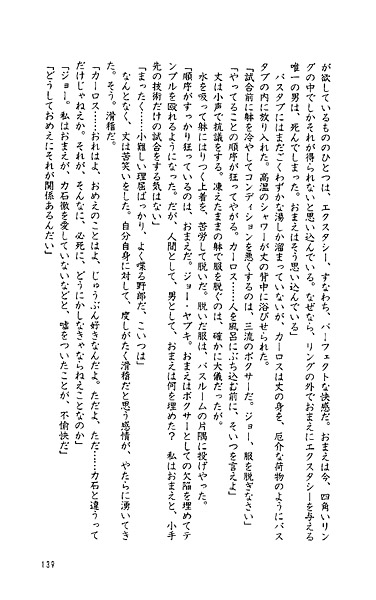 が欲しているもののひとつは、エクスタシー、すなわち、パーフェクトな快感だ。おまえは今、四角いリン
グの中でしかそれが得られないと思い込んでいる。なぜなら、リングの外でおまえにエクスタシーを与える
唯一の男は、死んでしまった。おまえはそう思い込んでいる」
バスタブにはまだごくわずかな湯しか溜まっていないが、カーロスは丈の身を、厄介な荷物のようにバス
タブの内に放り入れた。高温のシャワーが丈の背中に浴びせられた。
「試合前に躰を冷やしてコンディションを悪くするのは、三流のボクサーだ。ジョー、服を脱ぎなさい」
「やってることの順序が狂ってやがる。カーロス……人を風呂にぶち込む前に、そいつを言えよ」
丈は小声で抗議をする。凍えたままの躰で服を脱ぐのは、確かに大儀だったが。
水を吸って躰にはりつく上着を、苦労して脱いだ。脱いだ服は、バスルームの片隅に投げやった。
「順序がすっかり狂っているのは、おまえだ。ジョー・ヤブキ。おまえはボクサーとしての欠陥を埋めてテ
ンプルを殴れるようになった。だが、人間として、男として、おまえは何を埋めた？　私はおまえと、小手
先の技術だけの試合をする気はない」
「まったく……小難しい理屈ばっかり、よく喋る野郎だ、こいつは」
なんとなく、丈は苦笑いをした。自分自身に対して、度しがたく滑稽だと思う感情が、やたらに湧いてき
た。そう。滑稽だ。
「カーロス……おれはよ、おめえのことはよ、じゅうぶん好きなんだよ。ただよ、ただ……力石と違うって
だけじゃねえか。それが、そんなに、必死に、どうにかしなきゃならねえことなのか」
「ジョー。私はおまえが、力石徹を愛していないなどと、嘘をついたことが、不愉快だ」
「どうしておめえにそれが関係あるんだい」
139